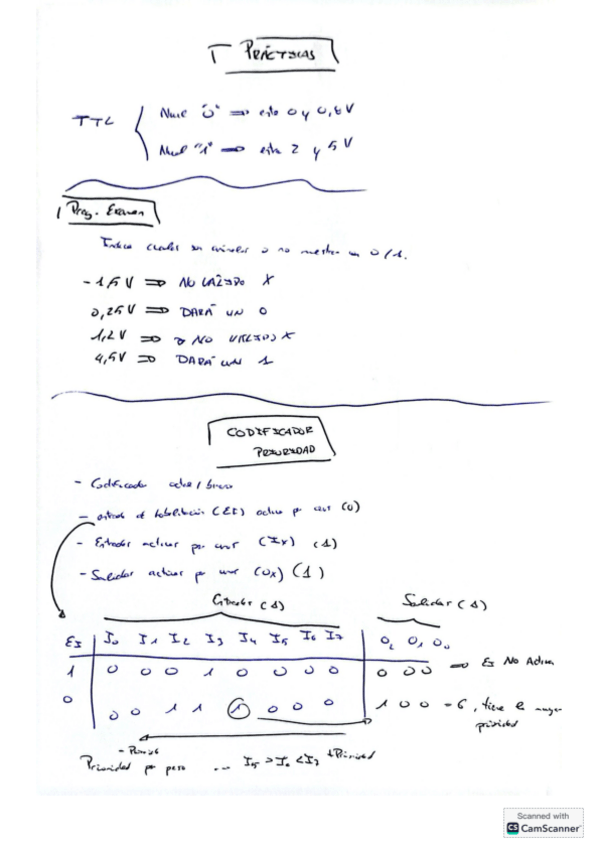 T PRÁCTICAS
TTL
Nivel "0" => entre 0 y 0,8 V
Nivel "1" => entre 2 y 5 V
1 Preg. Examen
Indica cuales son o no muestra un 0/1.
- 1,5 V => NO VÁLIDO X
0,25 V => DARÁ UN 0
1,2 V => NO VÁLIDO X
4,5V => DARÁ UN 1
CODIFICADOR
PRIORIDAD
- Codificador
- entrada de habilitación (EI) activa por (0)
- Entradas activas por (Ix) (1)
- Salidas activas por (Ox) (1)
Entradas (1) Salidas (1)
EI I0 I1 I2 I3 I4 I5 I6 I7 O2 O1 O0
1 0 0 0 1 0 0 0 0 0 0 0 => EI No Activa
0 0 0 1 1 1 0 0 0 1 0 0 , tiene la mayor
prioridad
- Priorid + Prioridad
Prioridad por peso ...
Scanned with
CS CamScanner